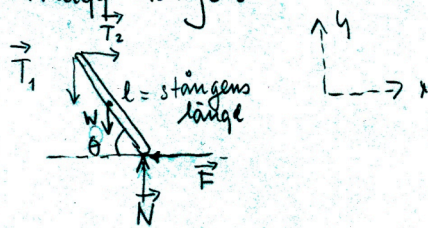 T₂
T₁
l = stångens
längd
W
θ
F
N
y
x